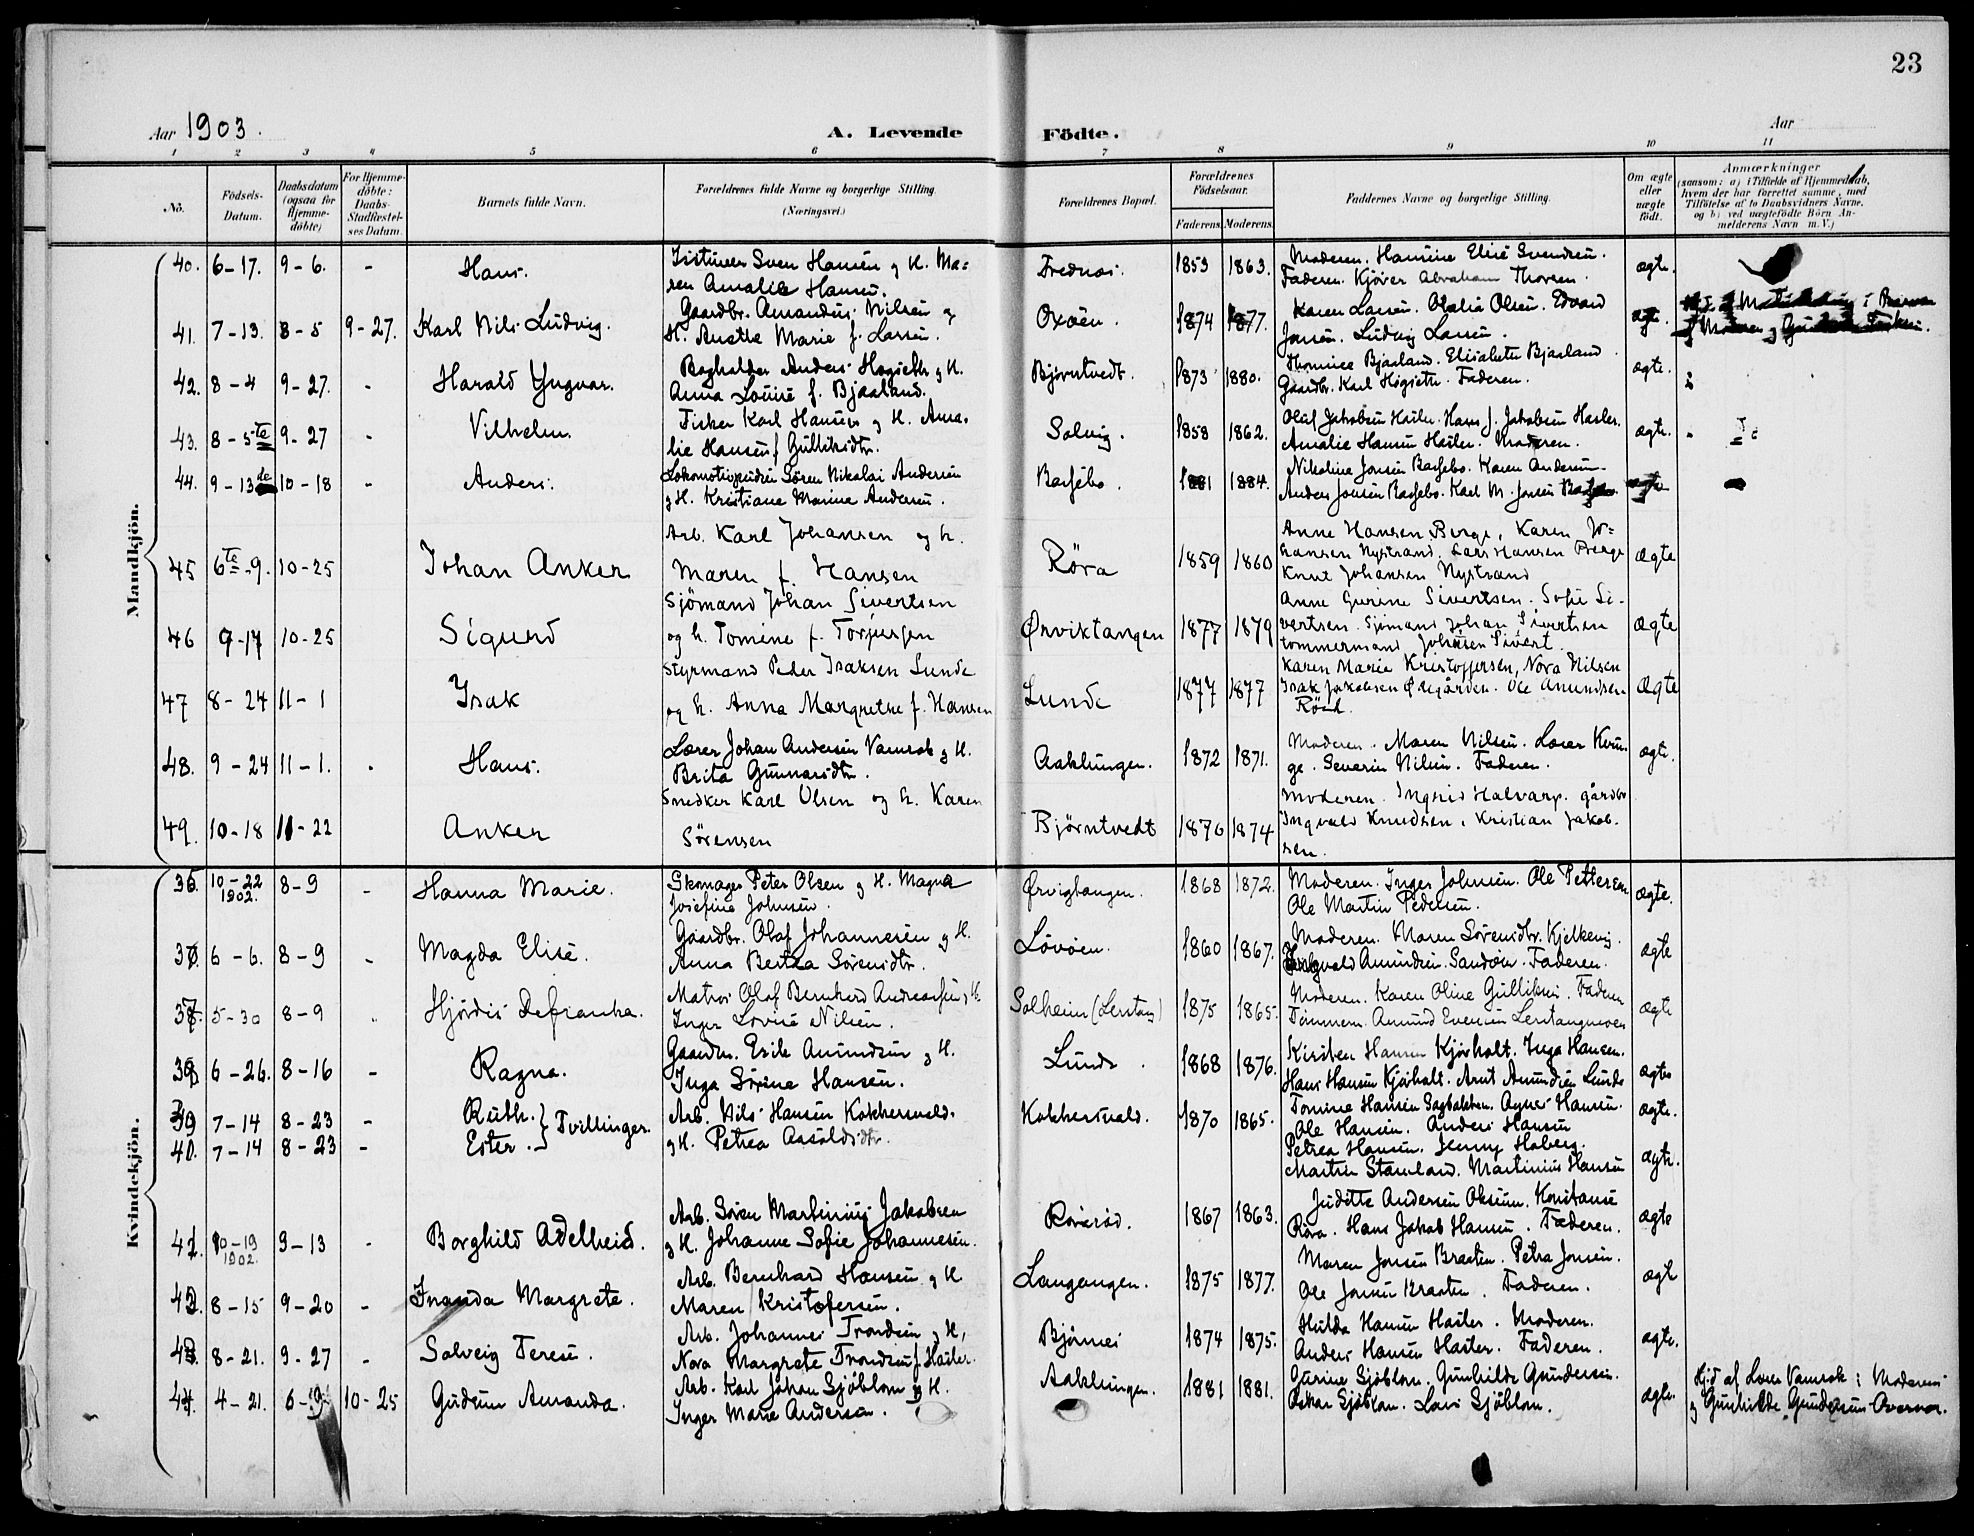 23
Aar 1903.
A. Levende Födte.
Aar
1 2 3 4 5 6 7 8 9 10 11
No.
Födsels-Datum.
Daabsdatum (ogsaa for Hjemme-döbte)
For Hjemme-döbte: Daabs-Stadfæstel-ses Datum.
Barnets fulde Navn.
Forældrenes fulde Navne og borgerlige Stilling. (Næringsvei.)
Forældrenes Bopæl.
Forældrenes Födselsaar.
Faderens. Moderens.
Faddernes Navne og borgerlige Stilling.
Om ægte eller uægte födt.
Anmærkninger
(saasom: a) i Tilfælde af Hjemmedaab,
hvem der har forrettet samme, med
Tilföielse af to Daabsvidners Navne.
og b) ved uægtefödte Börn An-
melderens Navn m. V.)
Mandkjön.
40. 6-17. 9-6. - Hans. Sven Hansen g H. Ma= 1853 1863. Moderen. Hansine Elise Svendsen. ægte.
ren Amalie Hansen. Faderen. Kjører Abraham Thorsen.
41. 7-13. 8-5 9-27. Karl Nils Ludvig. Gaardbr. Amandus Nilsen g Oxøen. 1874 1877. Karen Larsen. Olalia Olsen. Edvard ægte.
H. Anette Marie f. Larsen. Jonsen. Ludvig Larsen.
42. 8-4 9-27. - Harald Yngvar. Bogholder Anders g H. Bjørntvedt. 1873 1880. Bjaaland. Elisabeth Bjaaland. ægte.
Anna Louise f. Bjaaland. Gaardbr. Karl Faderen.
43. 8-5te 9-27 - Vilhelm. Fisker Karl Hansen g H. Ama- Solvig. 1858 1862. Oluf Jakobsen Hasler. Hans J. Jakobsen Hasler. ægte.
lie Hansen f Gulliksdtr. Amalie Hansen Hasler. Moderen.
44. 9-13de 10-18 - Anders. Lokomotivpudser Søren Nikolai Andersen Bassebo. 1881 1884. Nikoline Jonsen Bassebo. Karen Andersen.
g H. Kristiane Marine Andersen. Anders Jonsen Bassebo. Karl M. Jonsen
45 6te-9. 10-25 Johan Anker Arb. Karl Johansen og h. Røra 1859 1860 Anne Hansen Berge, Karen Jo= ægte
Maren f. Hansen hansen Nystrand. Lars Hansen Berge
Knut Johansen Nystrand
46 9-17 10-25 Sigurd Sjömand Johan Sivertsen Ørviktangen 1877 1879 Anne Gurine Sivertsen. Sofie Si- ægte
og h. Tomine f. Torjussen vertsen. Sjömand Johan Sivertsen
tømmermand Johansen Sivert.
47 8-24 11-1 Isak Styrmand Peder Isaksen Lunde Lunde 1877 1877 Karen Marie Kristoffersen, Nora Nilsen ægte
og h. Anna Margrethe f. Hansen Isak Jakobsen Ødegården. Ole Amundsen
48. 9-24 11-1. Hans. Lærer Johan Andersen Vamrak g H. Aaklungen. 1872 1871. Moderen. Maren Nilsen. Lærer ægte.
Brita Gunnarsdtr. Severin Nilsen. Faderen.
49. 10-18 11-22 Anker Snedker Karl Olsen og h. Karen Bjørntvedt 1876 1874 Moderen. Ingrid Halvarp. gårdbr
Sörensen Ingvald Knudsen. Kristian Jakob.
sen.
Kvindekjön.
36. 10-22 1902. 8-9 - Hanna Marie. Skomager Peter Olsen g H. Magna Ørvigtangen. 1868 1872. Moderen. Inger Johnsen. Ole Pettersen ægte.
Josefine Johnsen. Ole Martin Pedersen.
37. 6-6. 8-9 - Magda Elise. Gaardbr. Olaf Johannesen g H. Løvøen. 1860 1867. Moderen. Maren Sørensdtr. Kjelkevig. ægte
Anna Bertha Sørensdtr. Amundsen Sandøen. Faderen.
37. 5-30 8-9 Hjördis Defranka. Matros Olaf Bernhard Andreassen g H Solheim (Lerstang) 1875 1865. Moderen. Karen Oline Gulliksen. Faderen ægte
Inger Lovise Nilsen. Tömmerm. Amund Evensen
38 6-26. 8-16 - Ragna. Gaardbr. Erik Amundsen g H. Lunde. 1868 1876. Kirsten Hansen Kjørholt. Inga Hansen. ægte
Inga Sørine Hansen. Hans Hansen Kjørholt. Arnt Amundsen Lunde
39 7-14 8-23 - Ruth. } Tvillinger. Arb. Nils Hansen Kokkersvold. Kokkersvold. 1870 1865. Tomine Hansen Sagbakken. Agnes Hansen. ægte.
Ole Hansen. Anders Hansen
40. 7-14 8-23 - Ester. g H. Petrea Aasoldsdtr. Petrea Hansen. Jenny Hoberg. ægte.
Martin Stamland. Martinius Hansen
41. 10-19 1902. 9-13 - Borghild Adelheid. Arb. Søren Martinius Jakobsen 1867 1863. Juditte Andersen Oksøen. Konstanse ægte
g H. Johanne Sofie Johannesen. Røra. Hans Jakob Hansen. Faderen.
42. 8-15 9-20 - Inanda Margrete. Arb. Bernhard Hansen g H. Langangen. 1875 1877. Maren Jonsen Braaten. Petra Jonsen. ægte
Maren Kristofersen. Ole Jonsen Braaten. Faderen.
43. 8-21. 9-27 - Solveig Terese. Arb. Johannes Trondsen g H, Bjørnnes 1874 1875. Hulda Hansen Hasler. Moderen. ægte.
Nora Margrete Trondsen f. Hasler. Anders Hansen Hasler. Faderen.
44. 4-21. 6-9 10-25 Gudrun Amanda. Arb. Karl Johan Sjöblom g H. Aaklungen. 1881 1881. Gurine Sjöblom. Gunhilde Gundersen. ægte. Hjd af Lærer Vamrak i Moderens
Inger Marie Andersen. Oskar Sjöblom. Lars Sjöblom. g Gunhilde Gundersens Overvær.